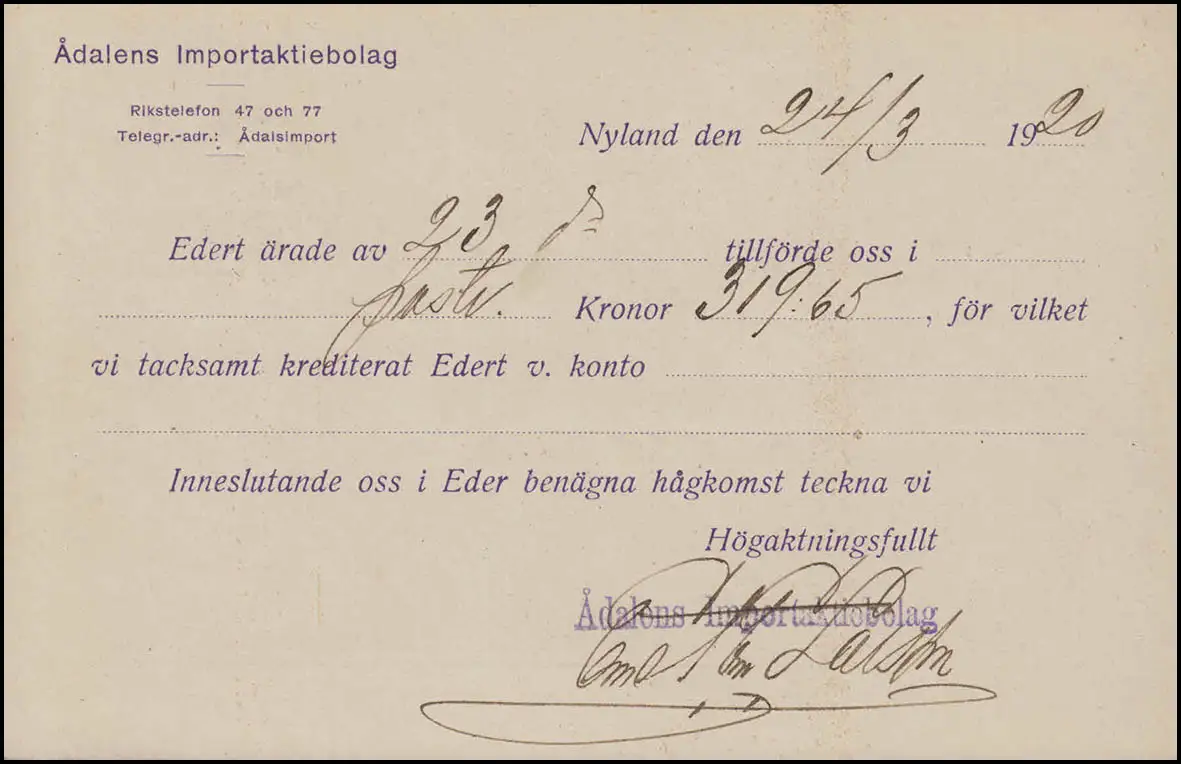 Ådalens Importaktiebolag
Rikstelefon 47 och 77
Telegr.-adr.: Ådalsimport
Nyland den 24/3 1920
Edert ärade av 23 ds tillförde oss i
postv. Kronor 319:65, för vilket
vi tacksamt krediterat Edert v. konto
Inneslutande oss i Eder benägna hågkomst teckna vi
Högaktningsfullt
Ådalens Importaktiebolag
Larson